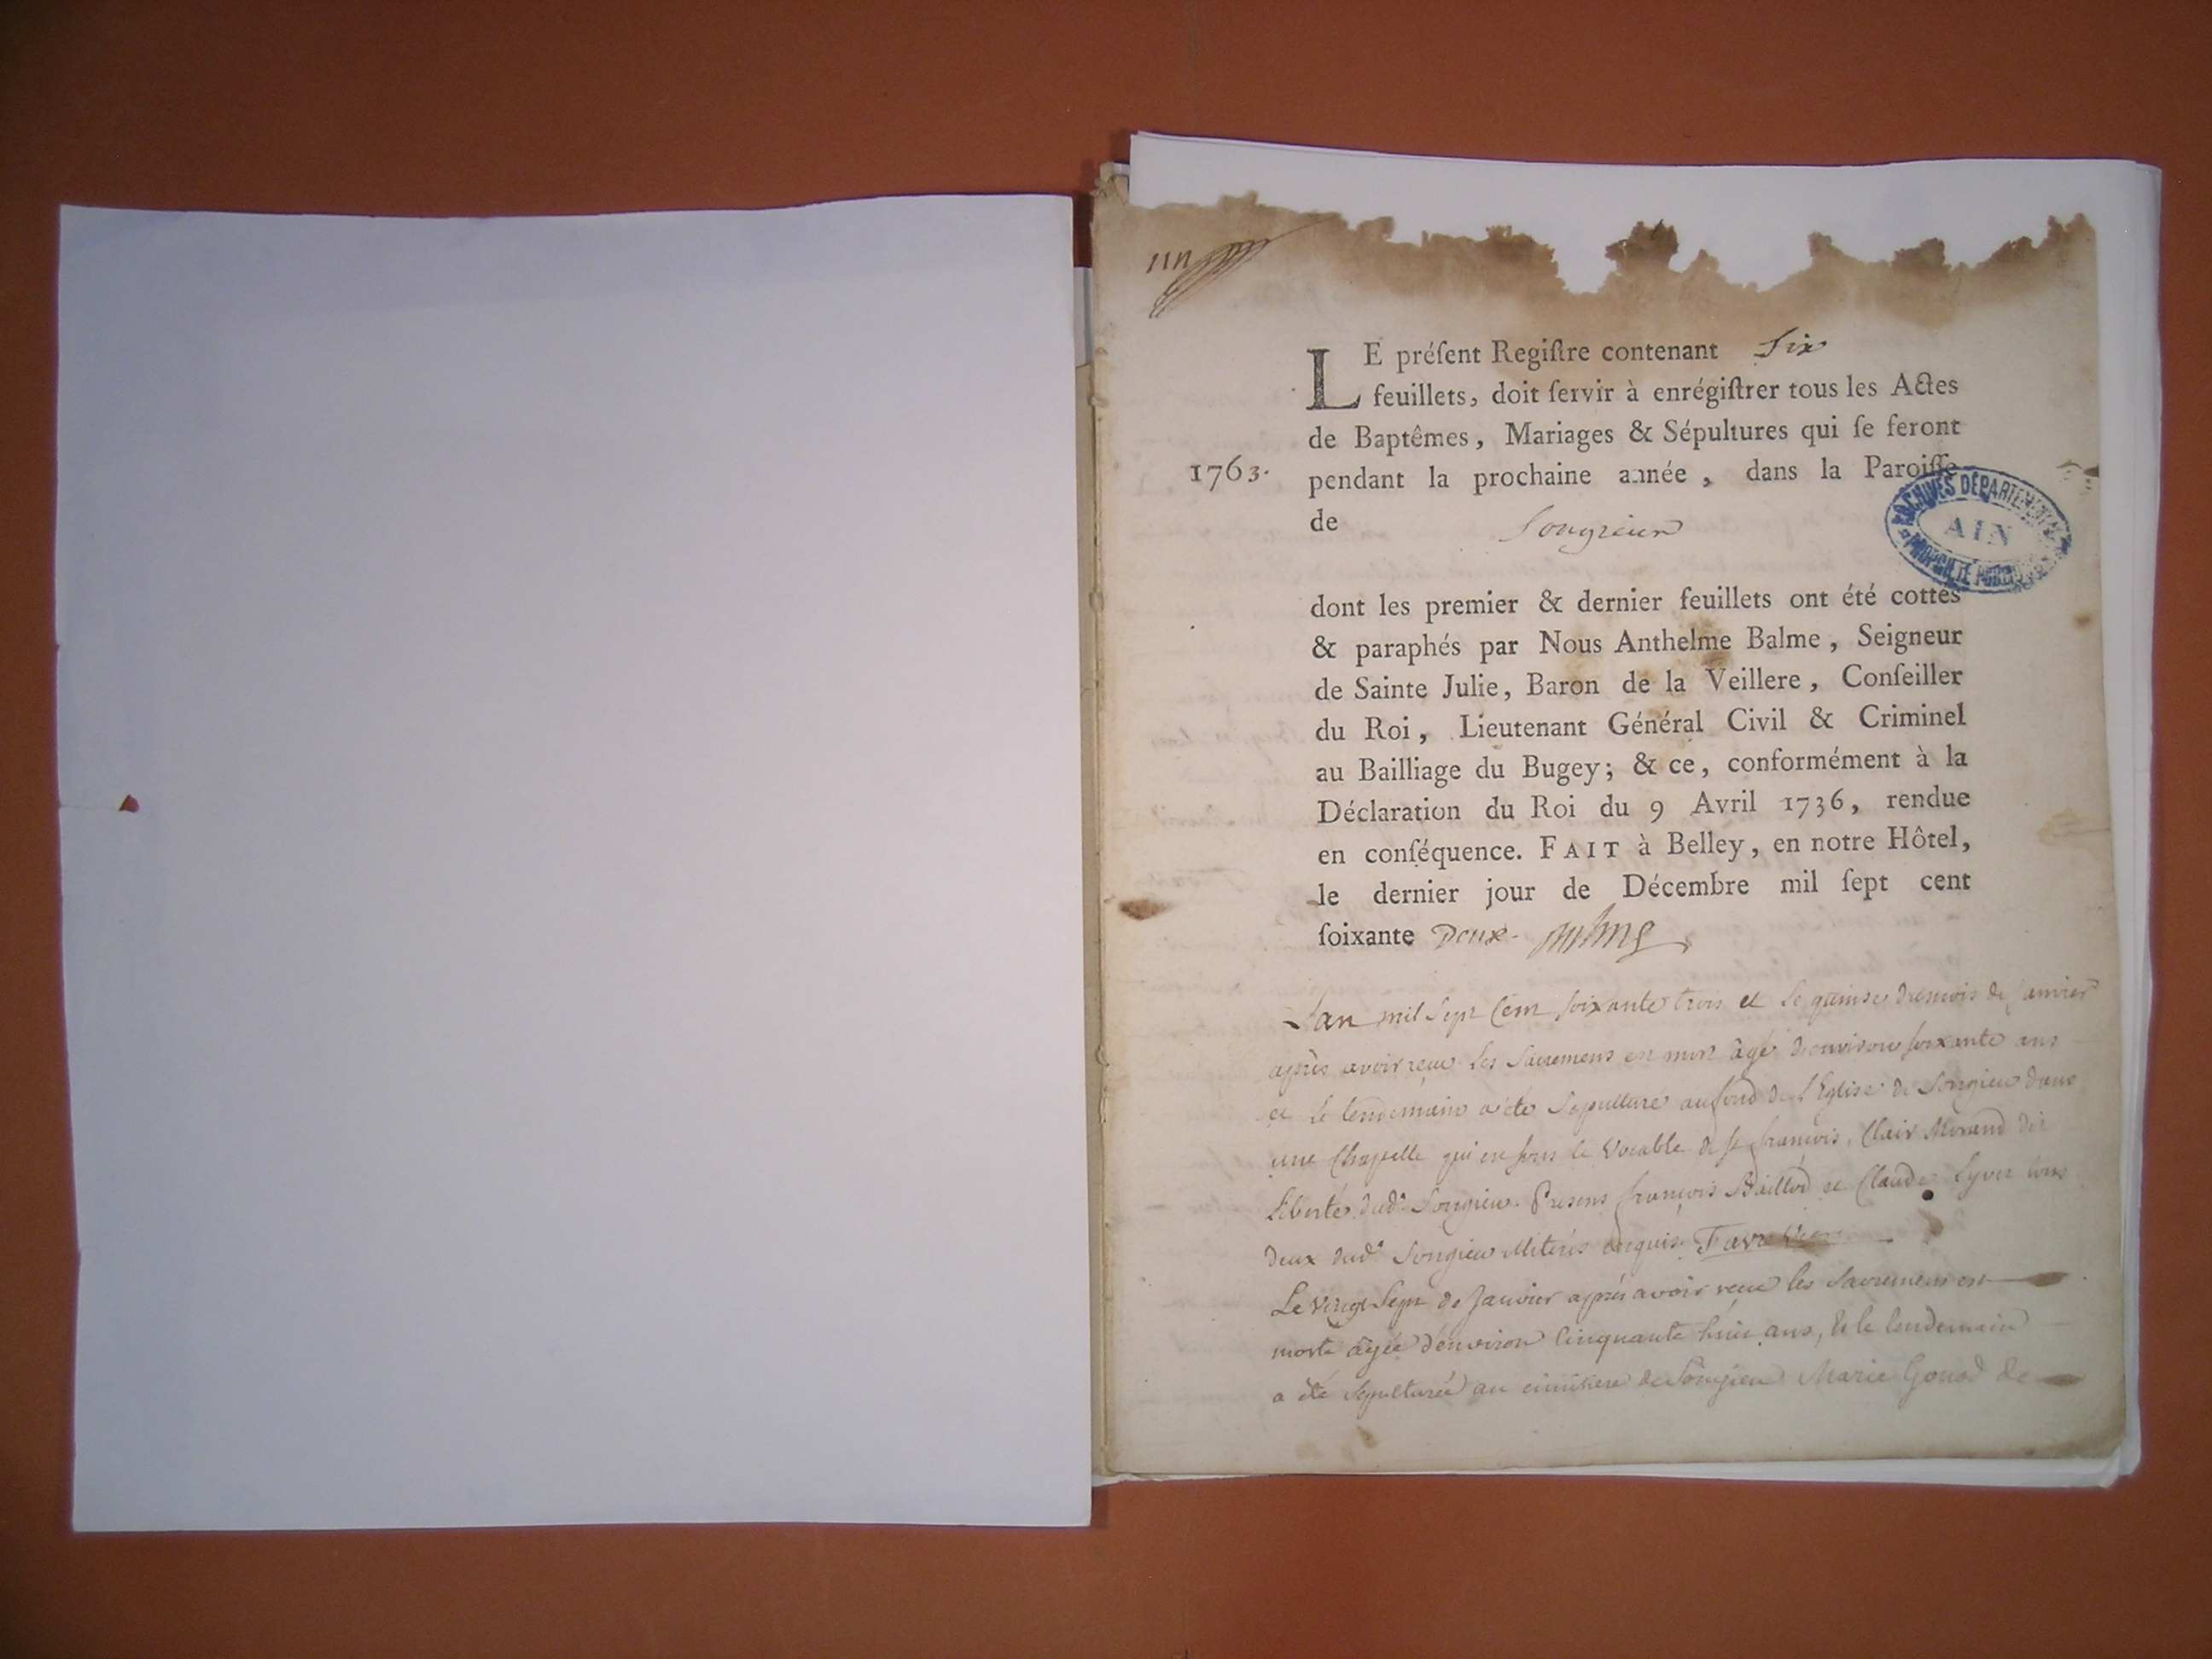 LE préſent Regiſtre contenant Six
feuillets, doit ſervir à enrégiſtrer tous les Actes
de Baptêmes, Mariages & Sépultures qui ſe feront
1763. pendant la prochaine année, dans la Paroiſſe
de Songieu
ARCHIVES DÉPARTEMENTALES
AIN
PROPRIÉTÉ PUBLIQUE
dont les premier & dernier feuillets ont été cottés
& paraphés par Nous Anthelme Balme, Seigneur
de Sainte Julie, Baron de la Veillere, Conſeiller
du Roi, Lieutenant Général Civil & Criminel
au Bailliage du Bugey; & ce, conformément à la
Déclaration du Roi du 9 Avril 1736, rendue
en conſéquence. FAIT à Belley, en notre Hôtel,
le dernier jour de Décembre mil ſept cent
ſoixante Deux.
Lan mil sept cent soixante trois et le quinse du mois de janvier
après avoir reçu les sacremens est mort âgé d'environ soixante ans
et le lendemain a été sepulturé au fond de l'Eglise de Songieu dans
une Chapelle qui est sous le vocable de st francois, Clair Morand dit
liberté dud. Songieu. Presens françois Baillod et Claude lyver tous
deux dud. Songieu illiterés enquis. Favre
Le vingt sept de Janvier après avoir reçu les sacremens est
morte âgée d'environ cinquante huit ans, et le lendemain
a été sepulturée au cimitiere de Songieu Marie Gonod de